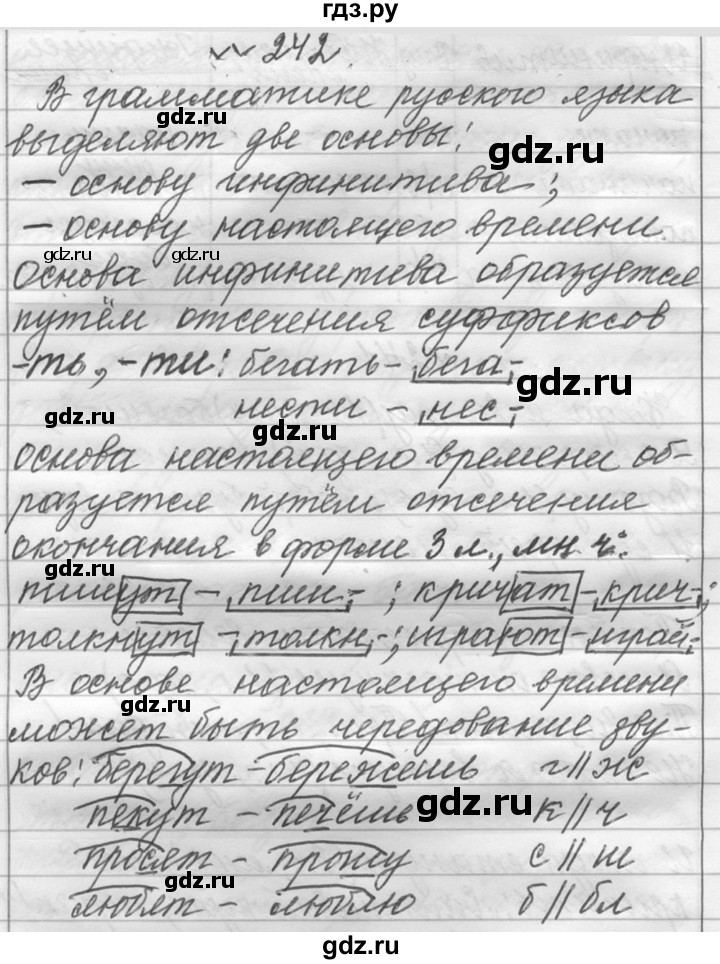 гдз.ру
№ 242.
В грамматике русского языка
gdz.ru
выделяют две основы:
gdz.ru
– основу инфинитива;
– основу настоящего времени.
gdz.ru
gdz.ru
Основа инфинитива образуется
путём отсечения суффиксов
-ть, -ти: бегать – бега-
gdz.ru
gdz.ru
нести – нес-
gdz.ru
основа настоящего времени об-
разуется путём отсечения
окончания в форме 3 л., мн. ч.:
gdz.ru
gdz.ru
пишут – пиш- ; кричат – крич-;
толкнут – толкн-; играют – играй-
В основе настоящего времени
gdz.ru
может быть чередование зву-
ков: берегут – бережёшь г//ж
gdz.ru
пекут – печёшь к//ч
просят – прошу с//ш
gdz.ru
любят – люблю б//бл
gdz.ru